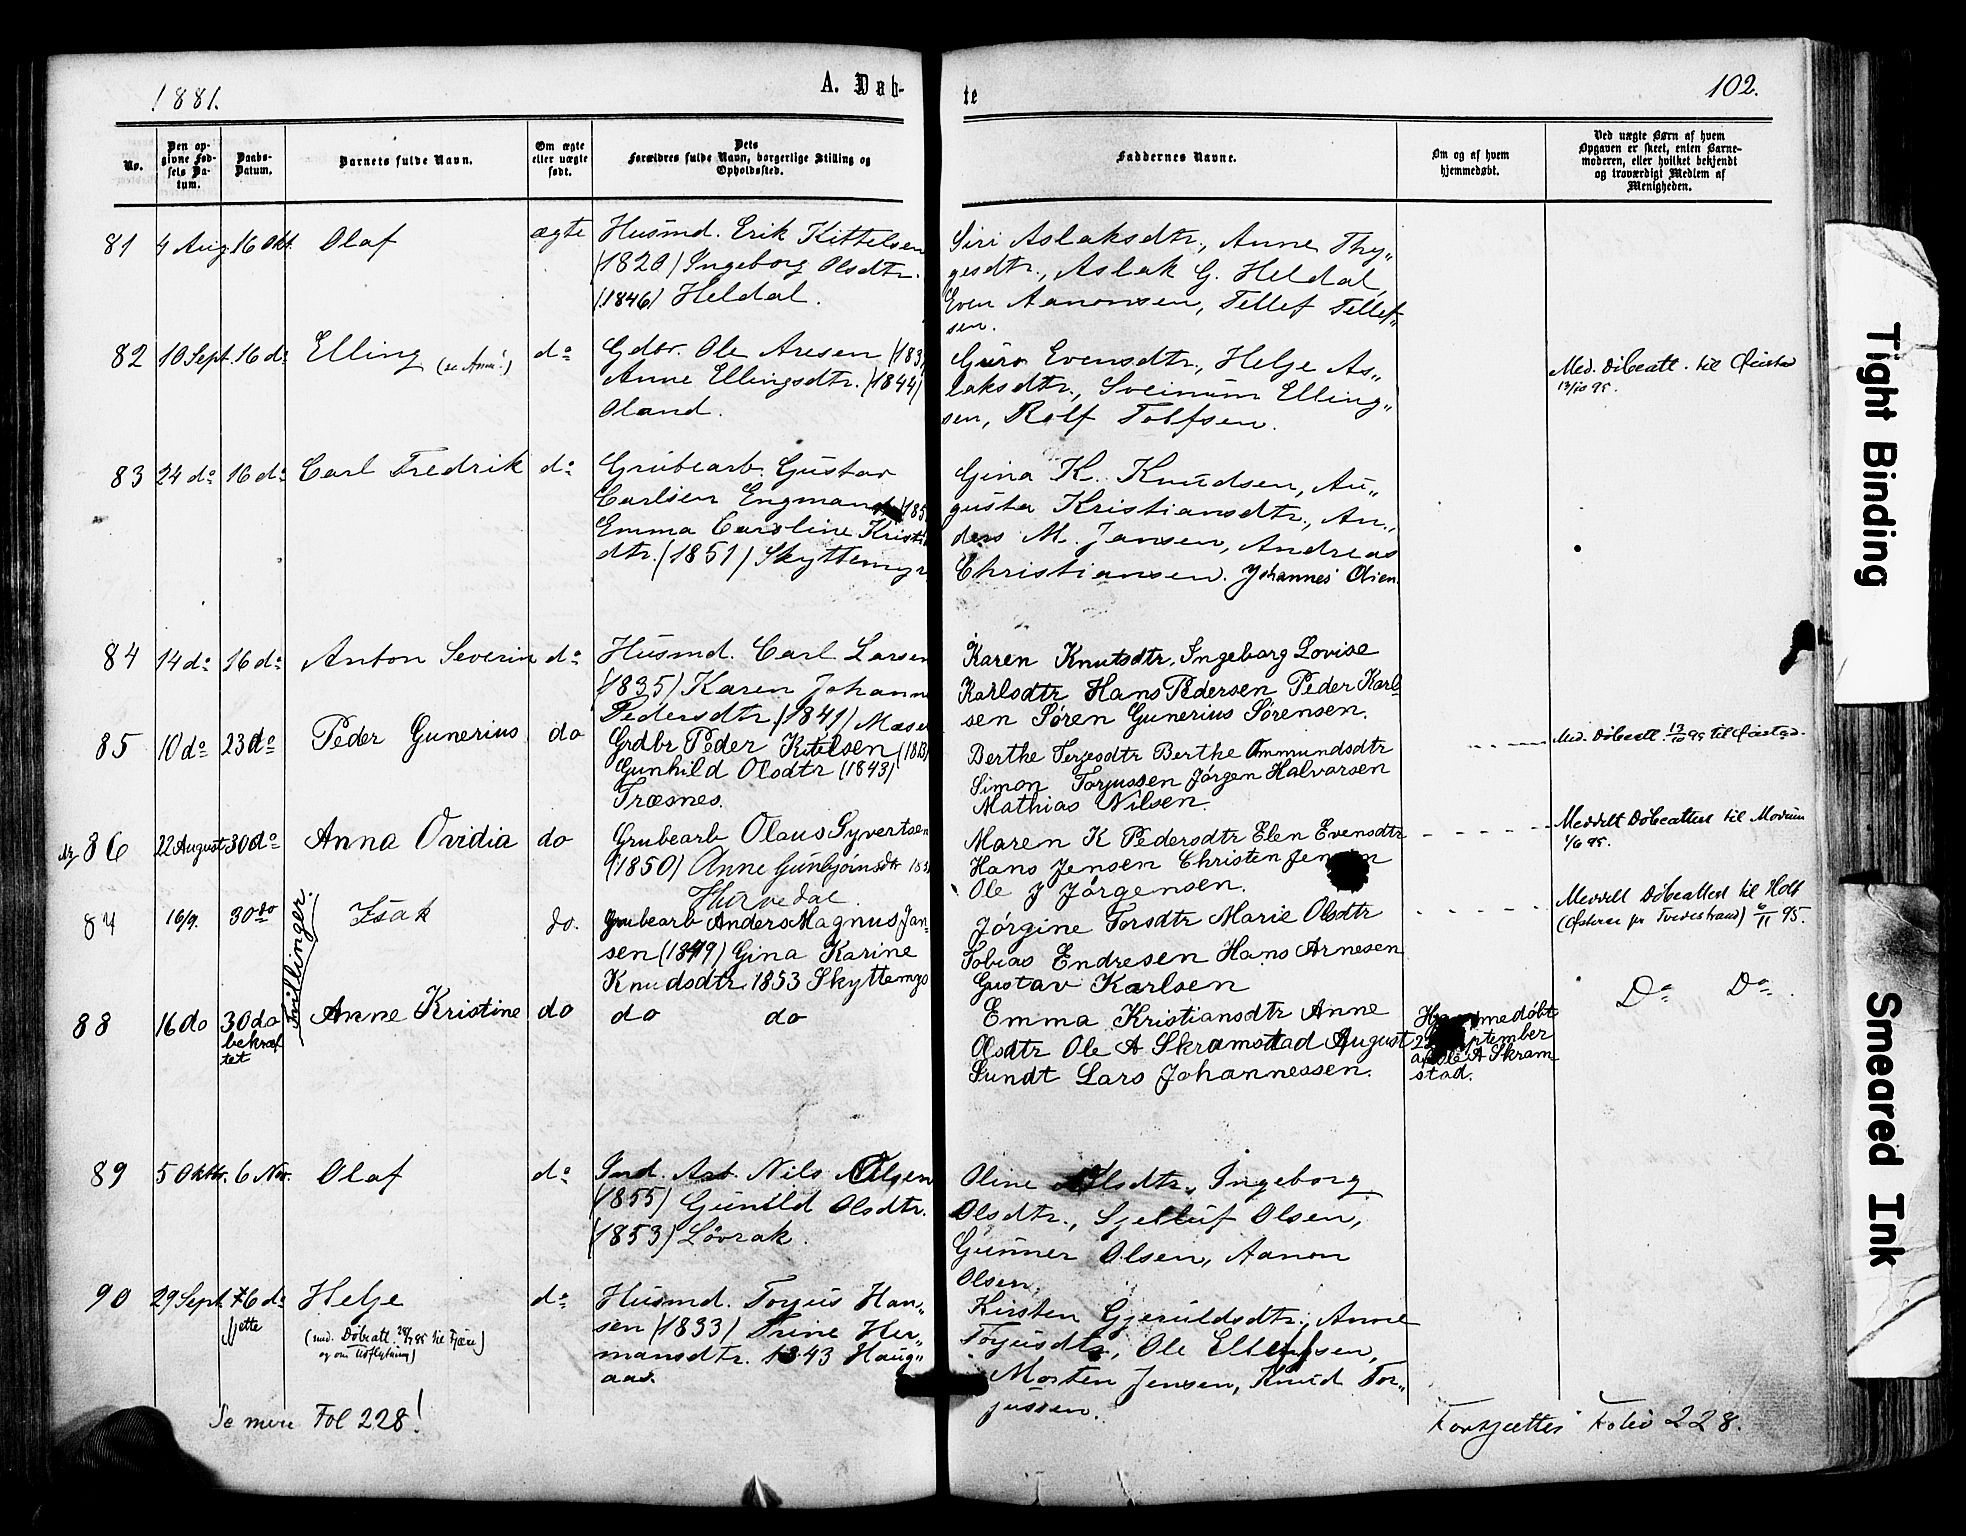 1881.
A. Døb-
te
102.
No.
Den op-
givne Fød-
sels Da-
tum.
Daabs-
Datum.
Barnets fulde Navn.
Om ægte
eller uægte
født.
Dets
Forældres fulde Navn, borgerlige Stilling og
Opholdssted.
Faddernes Navne.
Om og af hvem
hjemmedøbt.
Ved uægte Børn af hvem
Opgaven er skeet, enten Barne-
moderen, eller hvilket bekjendt
og troværdigt Medlem af
Menigheden.
81 4 Aug. 16 Okt. Olaf ægte
Husmd. Erik Kittelsen
(1820) Ingeborg Olsdtr.
(1846) Heldal.
Siri Aslaksdtr., Anne Thy„
gesdtr., Aslak G. Heldal,
Even Aanonsen, Tellef Tellef„
sen.
82 10 Sept. 16 do Elling do
Gdbr. Ole Aresen (183
Anne Ellingsdtr. (1844)
Oland.
Guro Evensdtr., Helje As„
laksdtr., Sveinum Elling„
sen, Rolf Tolfsen.
Med. Døbeatt. til Øiestad
13/10 95.
83 24 do 16 do Carl Fredrik do
Grubearb. Gustav
Carlsen Engmand (185
Emma Caroline Kristi
dtr. (1851) Skyttemyr
Gina K. Knudsen, Au„
gusta Kristiansdtr., An„
ders M. Jansen, Andreas
Christiansen. Johannes Olsen
84 14 do 16 do Anton Severin do
Husmd. Carl Larsen
(1835) Karen Johanne
Pedersdtr. (1841) Messel
Karen Knutsdtr. Ingeborg Lovise
Karlsdtr Hans Pedersen Peder Karl
sen Søren Gunerius Sørensen.
85 10 do 23 do Peder Gunerius do
Grdbr Peder Kitilsen (1813)
Gunhild Olsdtr (1843)
Træsnes.
Berthe Terjesdtr Berthe Ommundsdtr
Simon Torjussen Jørgen Halvorsen
Mathias Nilsen.
Med. Døbeatt. 13/10 95 til Øiestad.
86 22 August 30 do Anna Ovidia do
Grubearb Olaus Syvertsen
(1850) Anne Gunbjørnsdtr 185
Thorvedal.
Maren K Pedersdtr Elen Evensdtr
Hans Jensen Christen Jensen
Ole J Jørgensen.
Meddelt Døbeattest til Modum
1/6 95.
87 16/9. 30 do Isak do.
Tvillinger.
Grubearb Anders Magnus Jan-
sen (1849) Gina Karine
Knudsdtr. 1853 Skyttemyr
Jørgine Torsdtr Marie Olsdtr
Tobias Endresen Hans Arnesen
Gustav Karlsen
Meddelt Døbeattest til Holt
(Østeraa pr Tvedestrand) 6/11 95.
88 16 do 30 do Anne Kristine do
bekræf
tet
do do
Emma Kristiansdtr Anne
Olsdtr Ole A Skramstad August
Sundt Lars Johannessen.
Hjemmedøbt
September
af Ole A Skram
stad.
Do Do
89 5 Oktbr. 6 Nov. Olaf do
Ind. Arb. Nils Olsen
(1855) Gunild Olsdtr.
(1853) Løvrak.
Oline Olsdtr., Ingeborg
Olsdtr., Gjelluf Olsen,
Gunner Olsen, Aanon
Olsen.
90 29 Sept. 6 do Helje do
(med. Døbeatt. til Fjære)
og om Udflytning)
Husmd. Torjus Han„
sen (1833) Trine Her„
mansdtr. 1843 Haug„
aas.
Kirsten Gjeruldsdtr., Anne
Torjusdtr., Ole Ellingsen,
Morten Jensen, Knud Tor„
jussen.
Se mere Fol 228!
Forsættes Folio 228.
Tight Binding
Smeared Ink